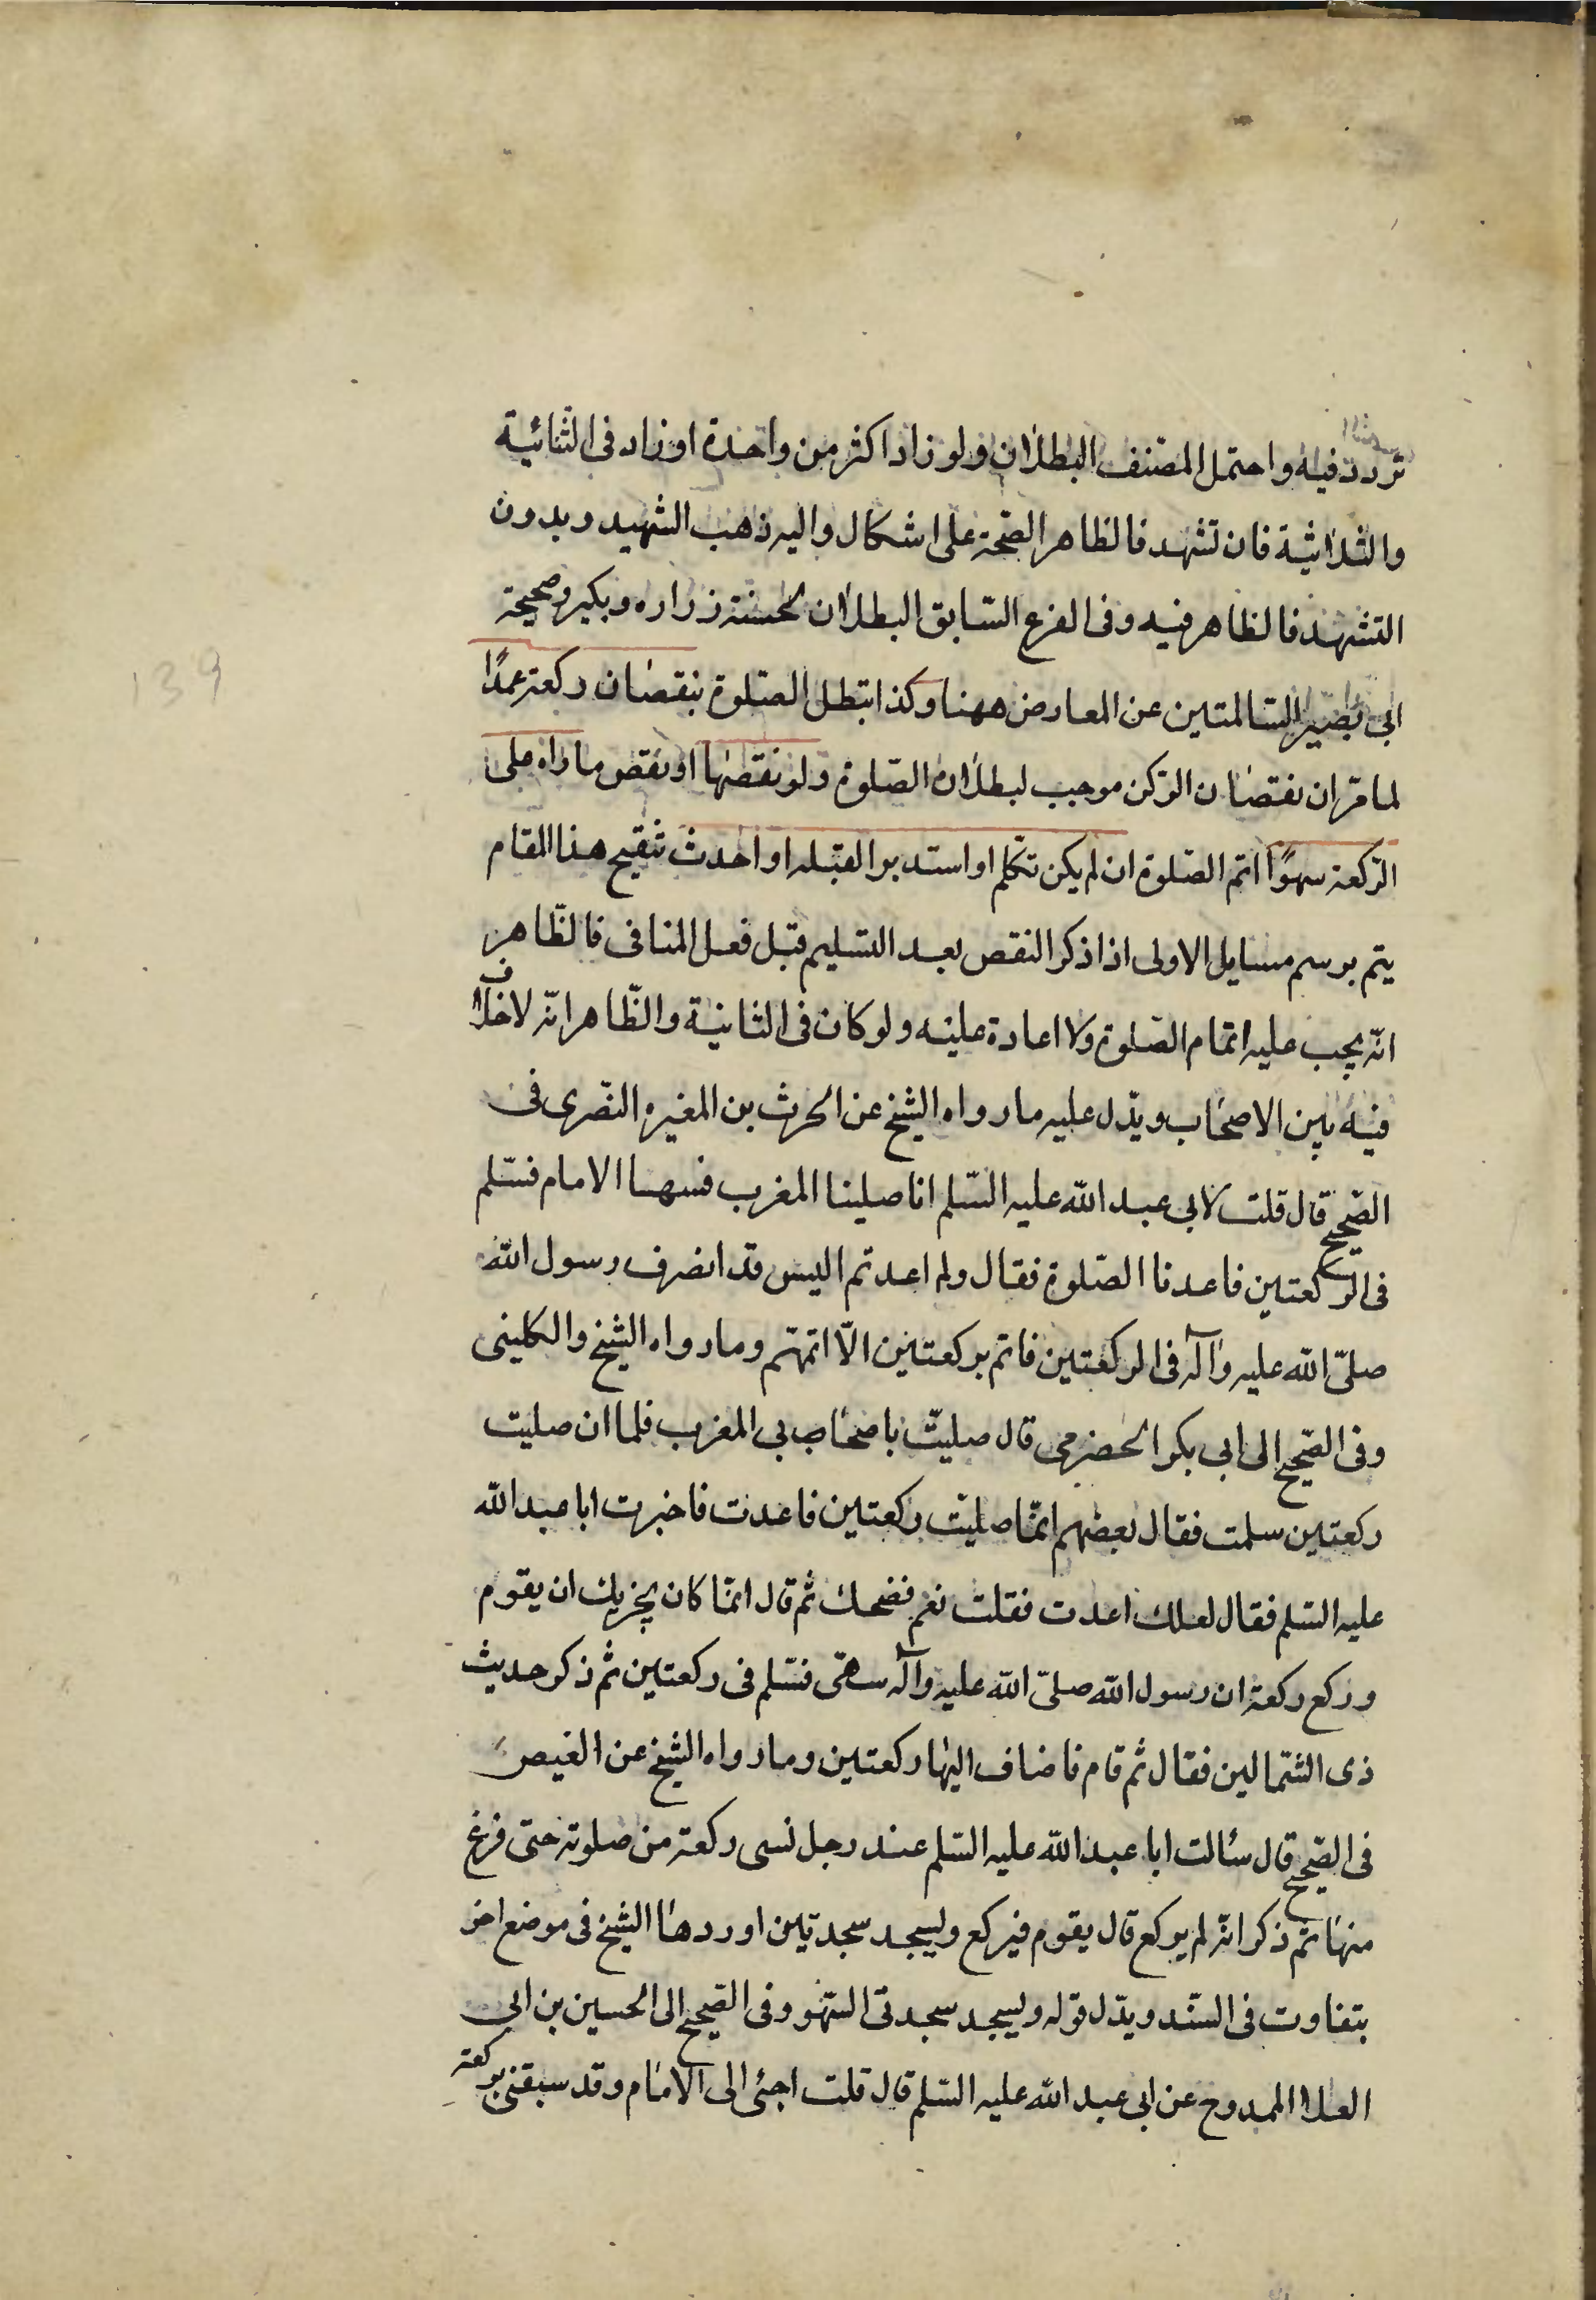 تردد فيه واحتمل المصنف البطلان ولو زاد اكثر من واحدة او زاد فى الثنائية
والثلاثية فان تشهد فالظاهر الصّحة على اشكال واليه ذهب الشهيد وبدون
التشهد فالظاهر فيه وفى الفرع السّابق البطلان لحسنة زراره وبكير وصحيحة
ابى بصير السّالمتين عن المعارض ههنا وكذا تبطل الصّلوة بنقصان ركعة عمدًا
لما مرّ ان نقصان الرّكن موجب لبطلان الصّلوة ولو نقصها او نقص ما زاد على
الرّكعة سهوًا اتم الصّلوة ان لم يكن تكلم او استدبر القبله او احدث تنقيح هذا المقام
يتم برسم مسايل الاولى اذا ذكر النقص بعد التسليم قبل فعل المنافى فالظّاهر
انّه يجب عليه اتمام الصّلوة ولا اعادة عليه ولو كان فى الثانية والظّاهر انّه لا خلاف
فيه بين الاصحاب ويدّل عليه ما رواه الشيخ عن الحرث بن المغيره النّصرى فى
الصّحيح قال قلت لابى عبد الله عليه السّلم انا صلينا المغرب فسها الامام فسّلم
فى الركعتين فاعدنا الصّلوة فقال ولم اعدتم اليس قد انصرف رسول الله
صلىّ الله عليه وآله فى الركعتين فاتم بركعتين الّا اتممتم وما رواه الشيخ والكلينى
وفى الصّحيح الى ابى بكر الحضرمى قال صليتّ باصحاب بى المغرب فلما ان صليت
ركعتين سلمت فقال بعضهم انمّا صليّت ركعتين فاعدت فاخبرت ابا عبد الله
عليه السّلم فقال لعلك اعدت فقلت نعم فضحك ثم قال انمّا كان يجزيك ان يقوم
وركع ركعة ان رسول الله صلىّ الله عليه وآله سهى فسّلم فى ركعتين ثم ذكر حديث
ذى الشّمالين فقال ثم قام فاضاف اليها ركعتين وما رواه الشيخ عن العيص
فى الصّحيح قال سئالت ابا عبد الله عليه السّلم عند رجل نسى ركعة من صلوته حتى فرغ
منها ثم ذكر انّه لم يركع قال يقوم فيركع وليسجد سجدتين اوردها الشيخ فى موضع اخر
بتفاوت فى السّند ويدّل قوله وليسجد سجدتى السّهو وفى الصّحيح الى الحسين بن ابى
العلا الممدوح عن ابى عبد الله عليه السّلم قال قلت اجئى الى الامام وقد سبقنى بركعة
139